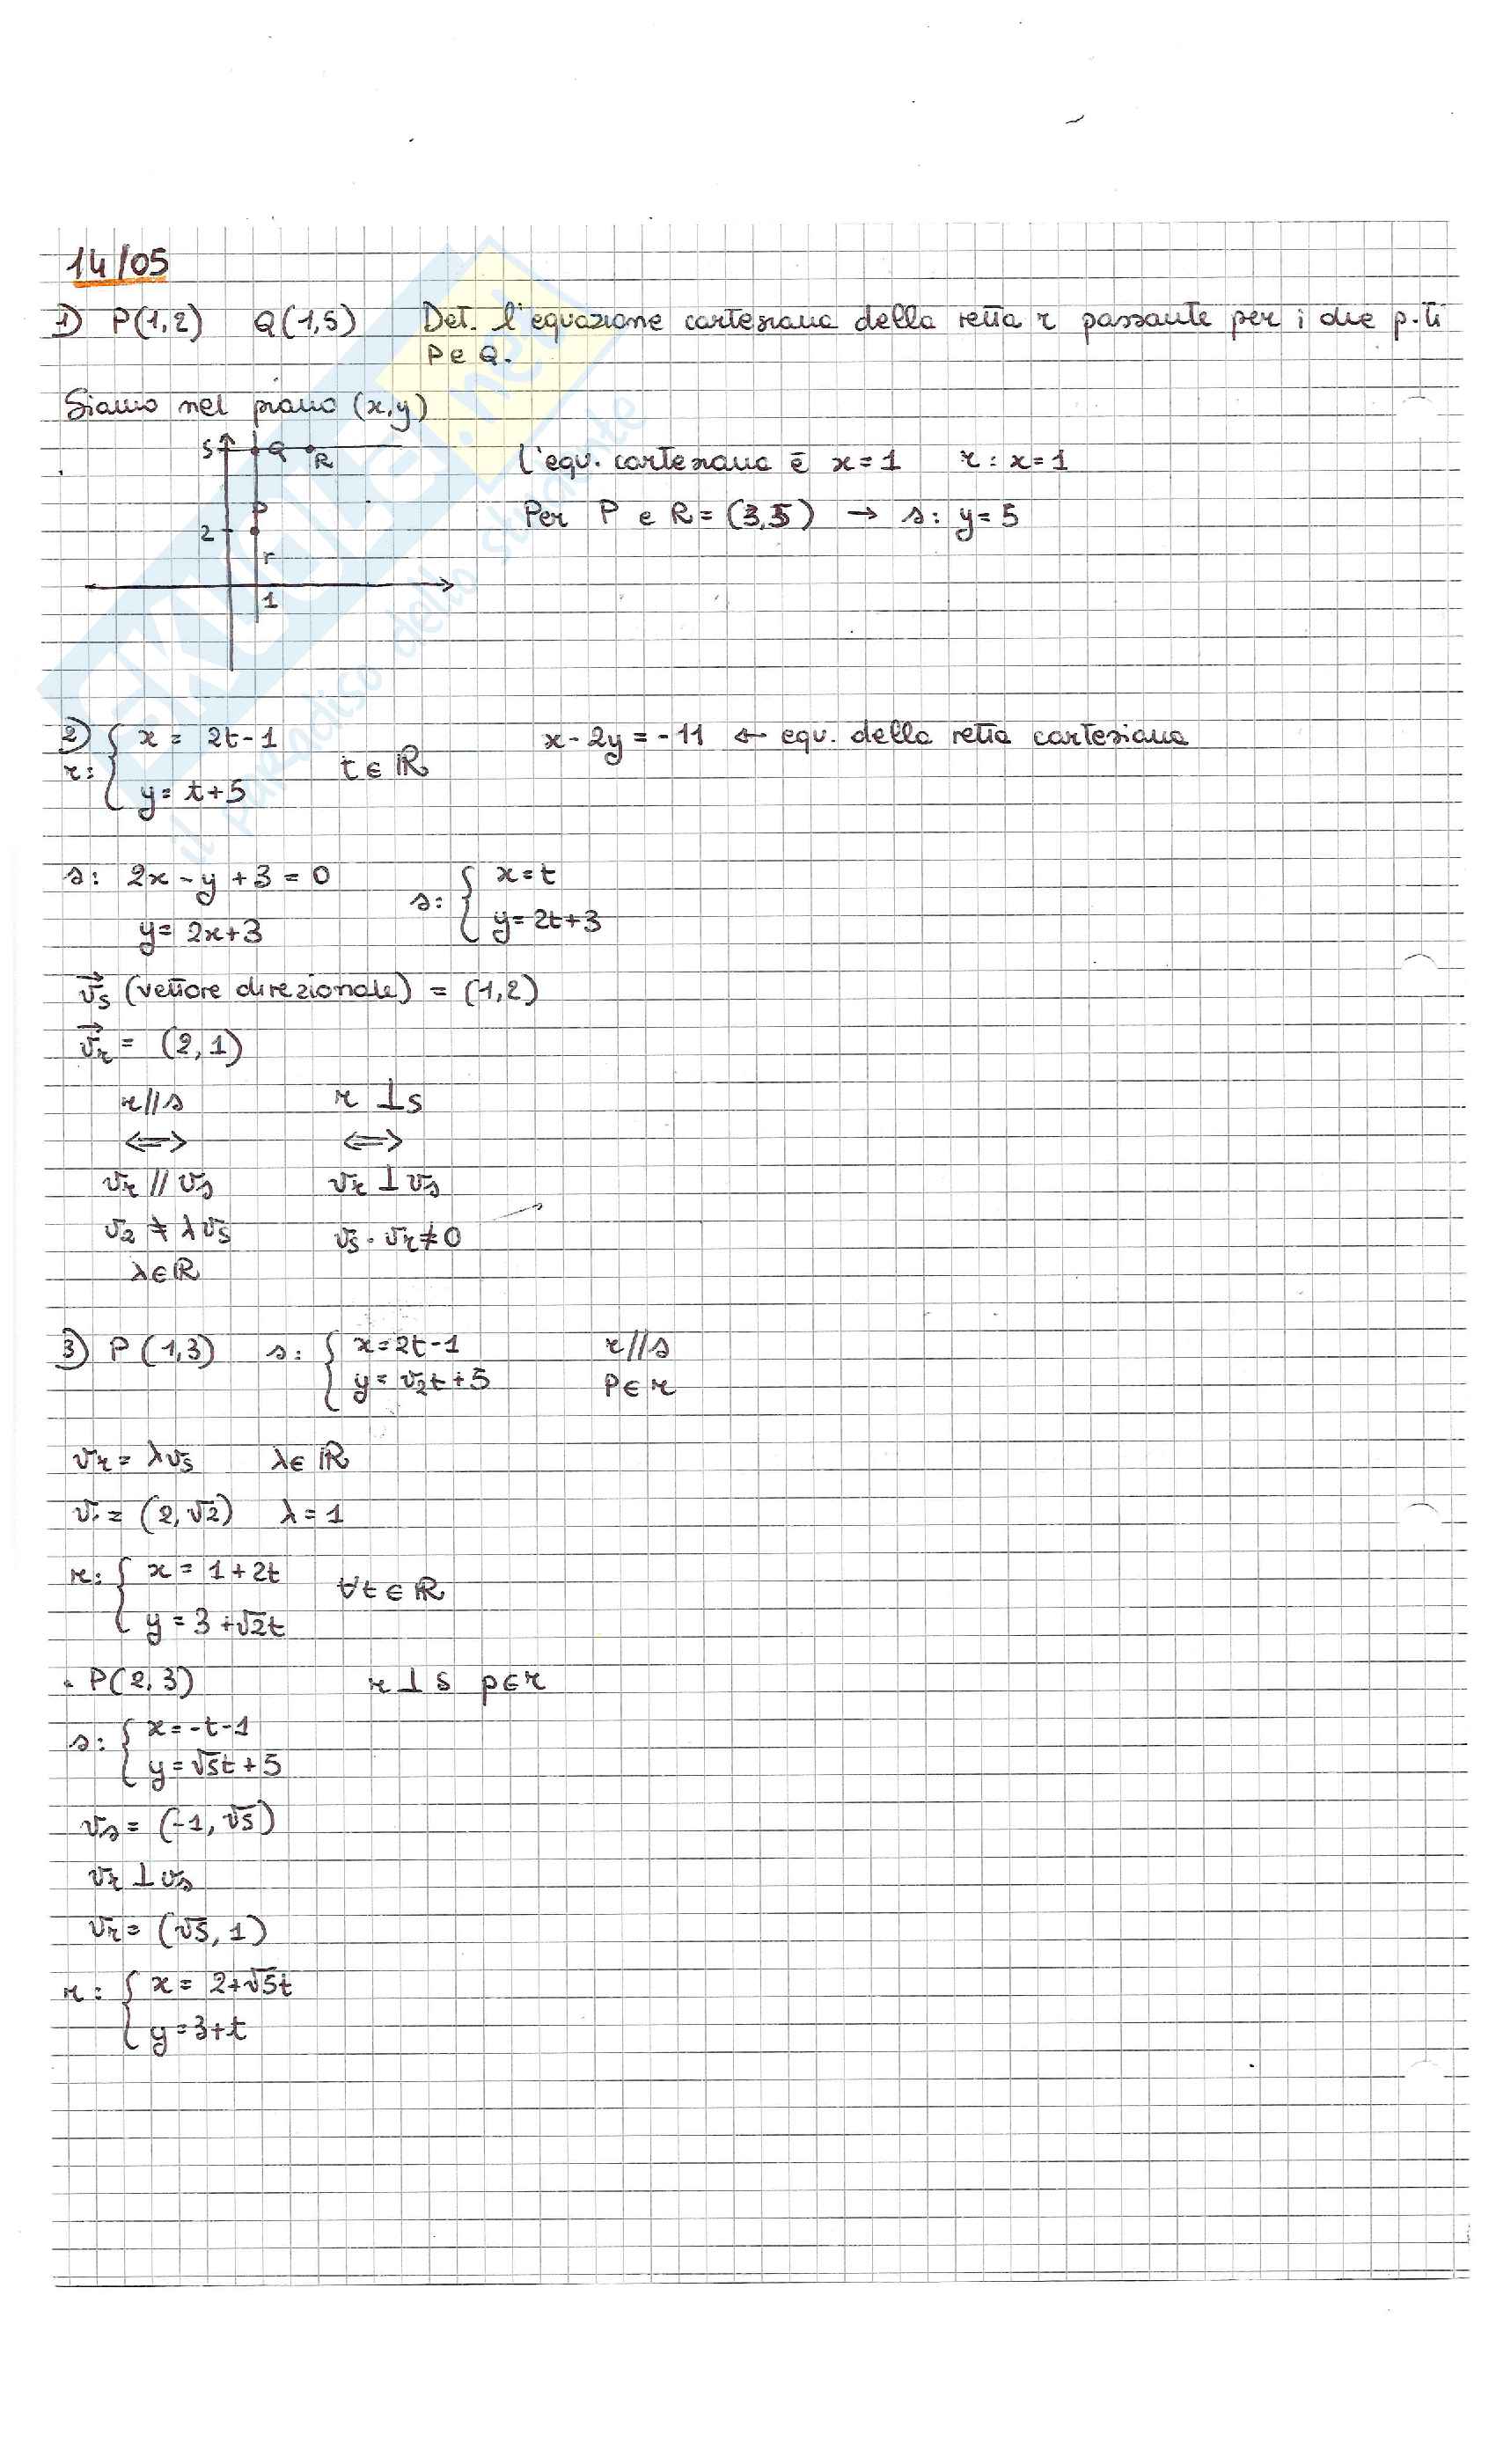 14/05
1) P(1,2) Q(1,5) Det. l'equazione cartesiana della retta r passante per i due p.ti
P e Q.
Siamo nel piano (x,y)
5 Q R
l'equ. cartesiana è x=1 r: x=1
P
Per P e R = (3,5) → s: y=5
2
r
1
2) r: { x = 2t-1
y = t+5 t∈ℝ
x-2y = -11 ← equ. della retta cartesiana
s: 2x-y+3=0
y= 2x+3
s: { x=t
y=2t+3
v⃗s (vettore direzionale) = (1,2)
v⃗r = (2,1)
r//s r ⊥ s
⟺ ⟺
vr // vs vr ⊥ vs
v2 ≠ λvs vs · vr ≠ 0
λ∈ℝ
3) P(1,3) s: { x=2t-1 r//s
y= √2t+5 P∈r
vr = λvs λ∈ℝ
v = (2,√2) λ=1
r: { x = 1+2t
y = 3+√2t ∀t∈ℝ
• P(2,3) r ⊥ s p∈r
s: { x=-t-1
y=√5t+5
vs = (-1,√5)
vr ⊥ vs
vr = (√5,1)
r: { x = 2+√5t
y=3+t
SKUOLA.net
il paradiso dello studente